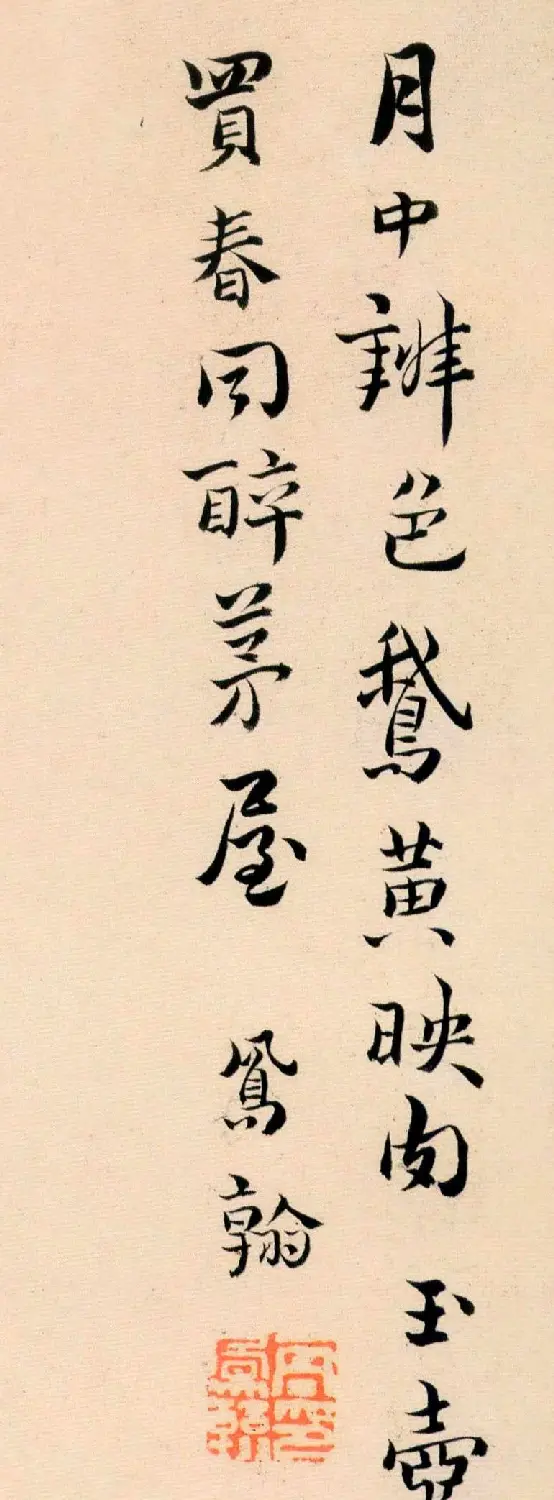 月中辨色鵞黄映肉玉壺
買春同醉茅屋 鳳翰